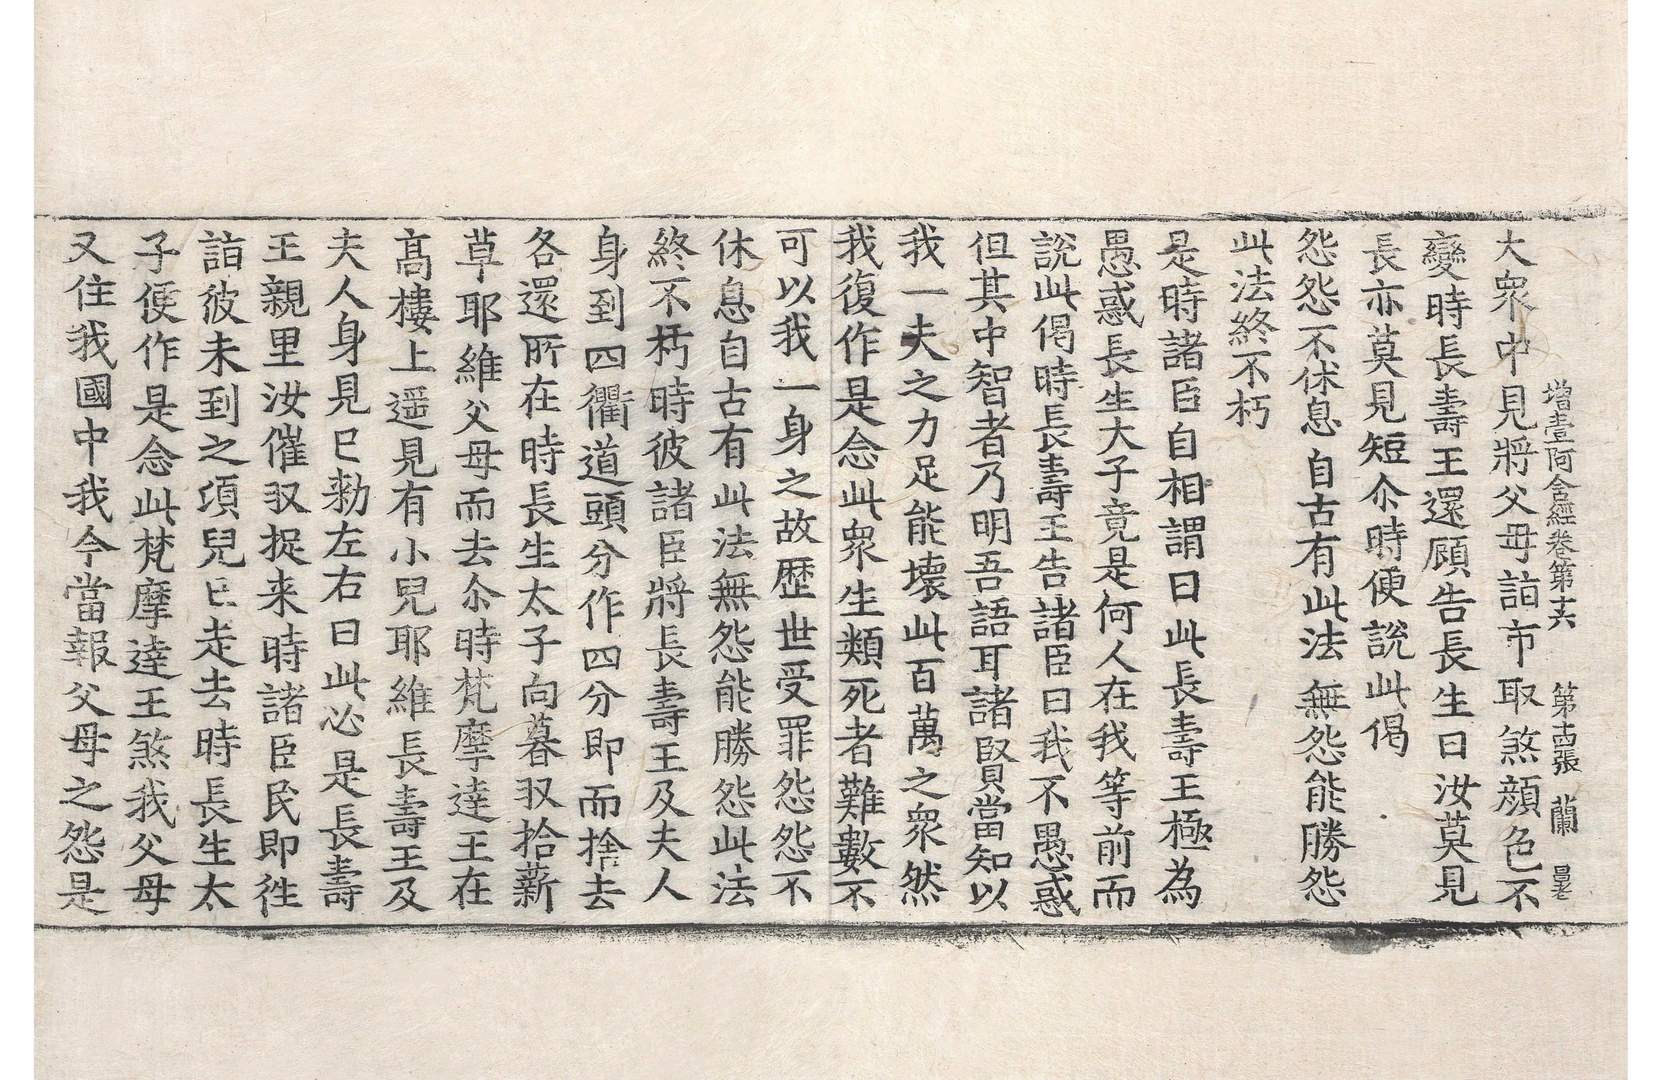 增壹阿含經卷第十六 第十四張 蘭
大衆中見將父母詣市取煞顔色不
變時長壽王還顧告長生曰汝莫見
長亦莫見短尒時便說此偈
怨怨不休息 自古有此法 無怨能勝怨
此法終不朽
是時諸臣自相謂曰此長壽王極為
愚惑長生太子竟是何人在我等前而
說此偈時長壽王告諸臣曰我不愚惑
但其中智者乃明吾語耳諸賢當知以
我一夫之力足能壞此百萬之衆然
我復作是念此衆生類死者難數不
可以我一身之故歷世受罪怨怨不
休息自古有此法無怨能勝怨此法
終不朽時彼諸臣將長壽王及夫人
身到四衢道頭分作四分即而捨去
各還所在時長生太子向暮収拾薪
草耶維父母而去尒時梵摩達王在
髙樓上遥見有小兒耶維長壽王及
夫人身見已勑左右曰此必是長壽
王親里汝催収捉来時諸臣民即徃
詣彼未到之頃兒已走去時長生太
子便作是念此梵摩達王煞我父母
又住我國中我今當報父母之怨是